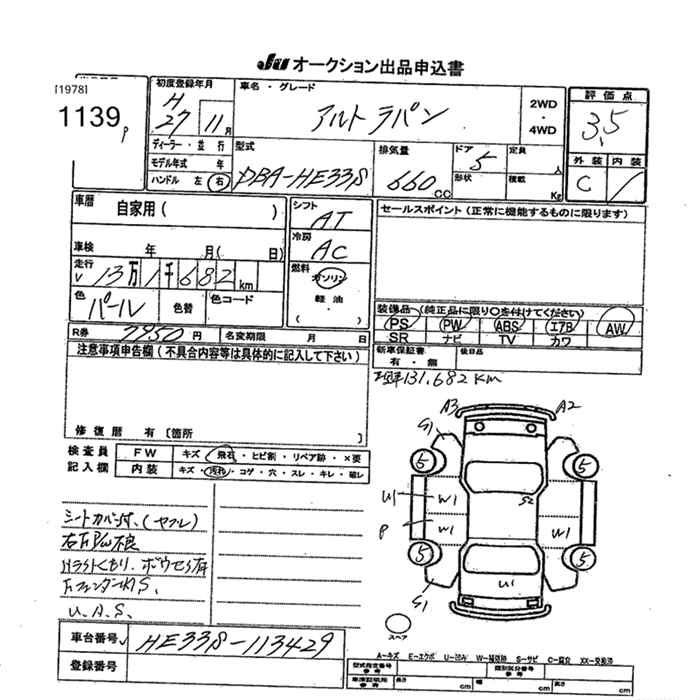 JU オークション出品申込書
[1978]
1139
P
初度登録年月
H
27 11月
車名・グレード
アルト ラパン
2WD
・
4WD
評価点
3.5
外装 内装
C
ディーラー・並行
モデル年式 年
ハンドル 左 右
型式
DBA-HE33S
排気量
660 CC
ドア
5
形状
定員
人
積載
Kg
車歴
自家用( )
車検 年 月( 日)
走行
13万1千682 km
色
パール
色替
色コード
シフト
AT
冷房
AC
燃料
ガソリン
軽油・
( )
セールスポイント(正常に機能するものに限ります)
装備品(純正品に限り○を付けてください)
PS PW ABS エアB AW
SR ナビ TV カワ
新車保証書
有・無
後日品
R券 7950円 名変期限 月 日
注意事項申告欄(不具合内容等は具体的に記入して下さい)
131,682 KM
修復歴 有〔箇所 〕
検査員
記入欄
FW キズ・飛石・ヒビ割・リペア跡・×要
内装 キズ・汚れ・コゲ・穴・スレ・キレ・破レ
シートカバー付、(ヤブレ)
U.A.S.
A3 A2
G1
5 5
S2
U1 W1
P W1 W1
5 5
U1
G1
スペア
車台番号 HE33S-113429
登録番号
A-キズ E-エクボ U-凹み W-補修跡 S-サビ C-腐食 XX-交換済
型式指定番号
参考
類別区分番号
参考
車庫証明用
参考
長さ cm 幅 cm 高さ cm